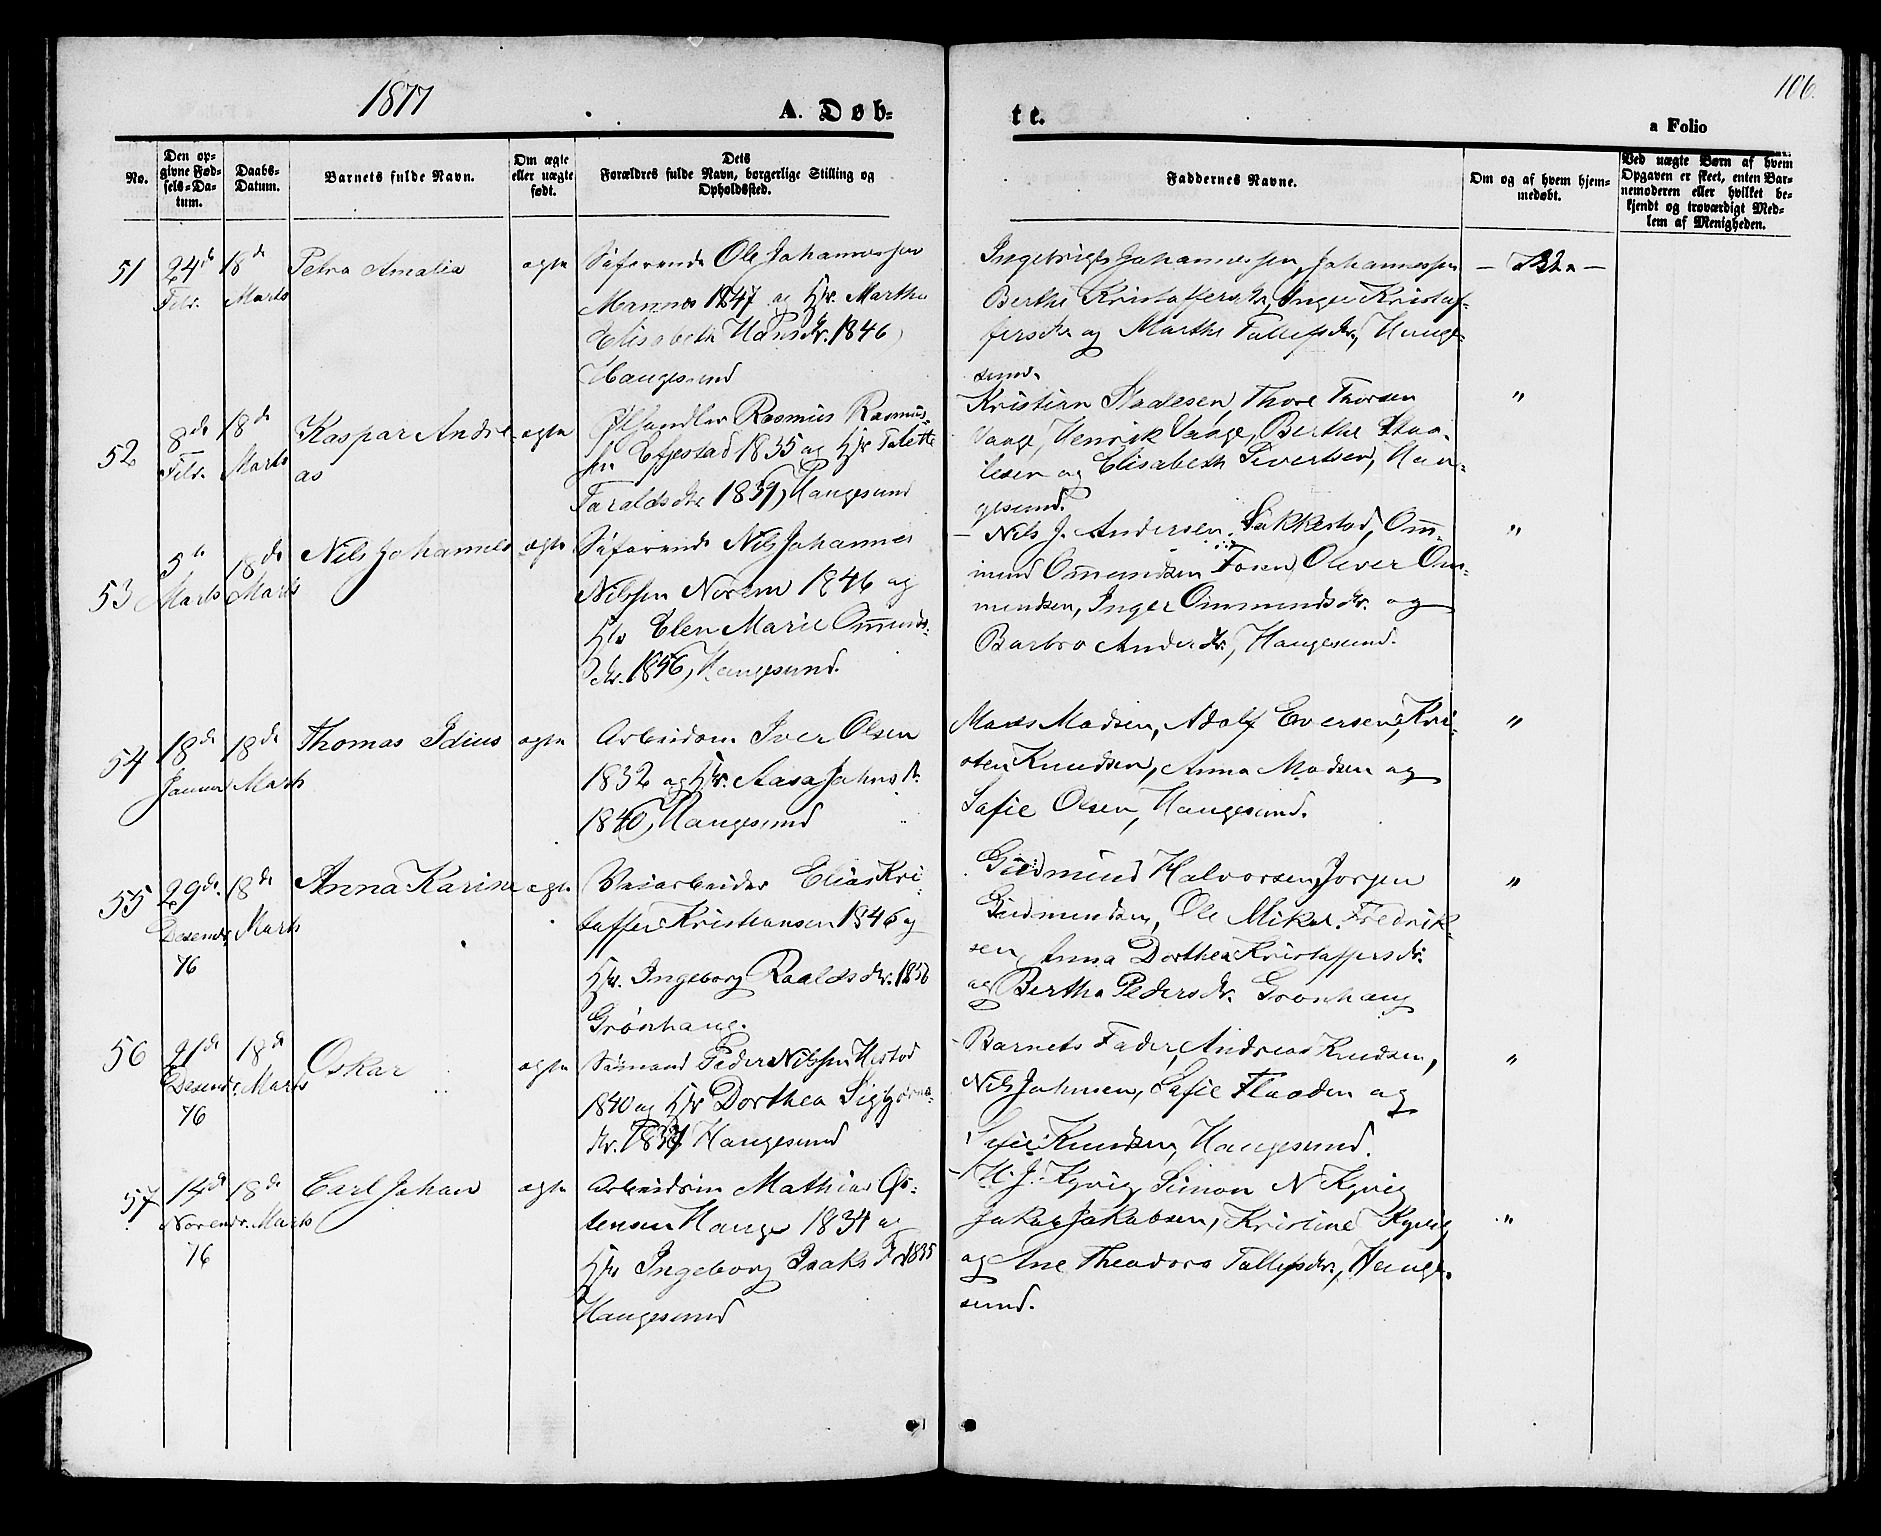 1877
A. Døb-
te.
106.
a Folio
No.
Den op-
givne Fød-
sels-Da-
tum.
Daabs-
Datum.
Barnets fulde Navn.
Om ægte
eller uægte
født.
Dets
Forældres fulde Navn, borgerlige Stilling og
Opholdssted.
Faddernes Navne.
Om og af hvem hjem-
medøbt.
Ved uægte Børn af hvem
Opgaven er skeet, enten Bar-
nemoderen eller hvilket be-
kjendt og troværdigt Med-
lem af Menigheden.
51
24de
Febr.
18de
Marts
Petra Amalia
ægte
Søfarende Ole Johannessen
1847 og Hst. Martha
Elisabeth Hansdtr. 1846
Haugesund
Ingebrigt Johannessen, Johannessen
Berthe Kristoffersdtr, Inger Kristof-
fersdtr og Marthe Tollefsdtr, Hauge-
sund.
52
8de
Febr.
18de
Marts
Kaspar Andre-
as
ægte
Rasmus Rasmus-
sen 1835 og Hst Talette
Taraldsdtr 1839, Haugesund
Kristian Thore Thorsen
Vaage, Henrik Vaage, Berthe
og Elisabeth Sivertsen, Hau-
gesund.
"
53
5te
Marts
18de
Marts
Nils Johannes
ægte
Søfarende Nils Johannes
Nilssen Norem 1846 og
Hst Elen Marie Ommunds-
dtr. 1856, Haugesund.
- Nils J. Andersen, Sakkestad, Om-
mund Ommundsen Oliver Om-
mundsen, Inger Ommundsdtr. og
Barbro Andersdtr, Haugesund.
"
54
18de
Januar
18de
Marts
Thomas Idius
ægte
Arbeidsm. Iver Olsen
1832 og Hst. Aasa Johnsdtr.
1840, Haugesund
Mads Madsen, Adolf Eversen, Kri-
sten Knudsen, Anna Madsen og
Safie Olsen, Haugesund.
"
55
29de
Desembr.
76
18de
Marts
Anna Karine
ægte
Veiarbeider Elias Kri-
staffer Kristiansen 1846 og
Hst. Ingeborg Roaldsdtr. 1850
Grønhaug.
Gudmund Halvorsen, Jørgen
Gudmundsen, Ole Mikal Fredrik-
sen, Anna Dorthea Kristoffersdtr.
og Bertha Pedersdtr. Grønhaug
"
56
21de
Desembr.
76
18de
Marts
Oskar
ægte
Sømand Peder Nilssen
1840 og Hst Dorthea Sigbjørns-
dtr. Haugesund
- Barnets Fader, Andreas Knudsen,
Nils Johnsen, Safie og
Safie Knudsen, Haugesund.
"
57
14de
Novembr.
76
18de
Marts
Carl Johan
ægte
Arbeidsm Mathias Øs-
tensen Hauge 1834 og
Hst Ingeborg Isaks 1835
Haugesund
- H. J. Kyvig, Simon N Kyvig
Jakob Jakobsen, Kristine Kyvig
og Ane Theodora Tollefsdtr., Hauge-
sund.
"